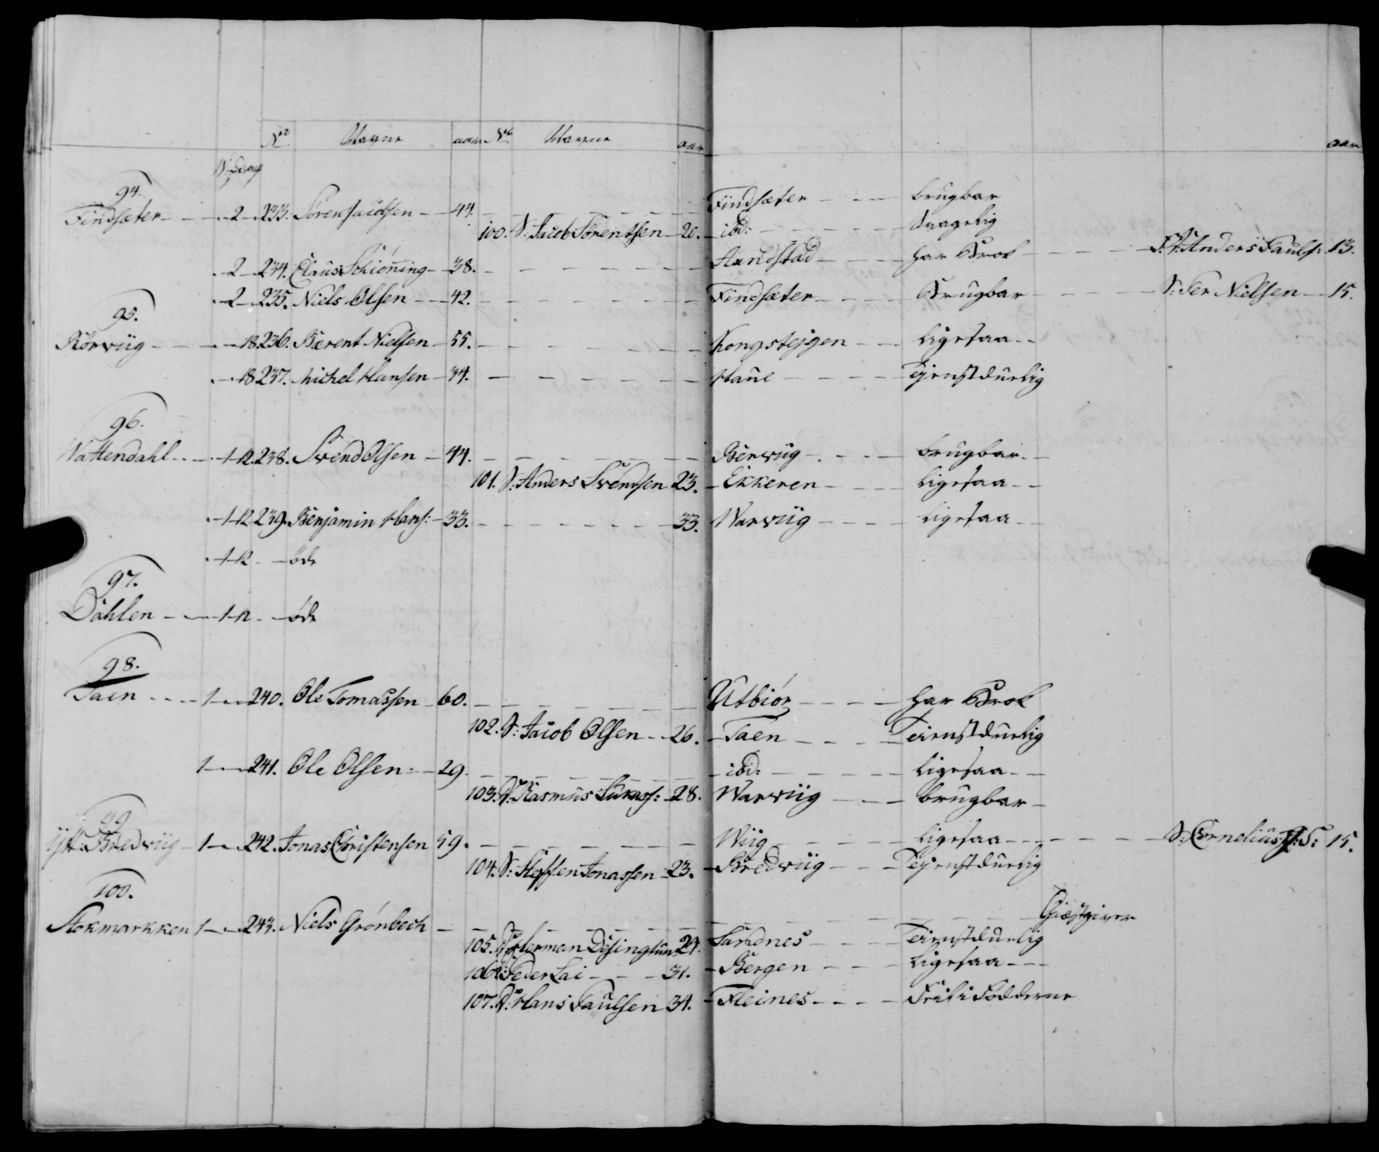 No Navne aar No Navne aar aar
94.
Findsæter - 2 - 233. Sören Jacobsen - 44. Findsæter brugbar
100. S: Jacob Sörentsen - 20. ibd: Svagelig
- 2 - 234. Claus Schiönning - 38. Sandstad har Brok Anders Paulss: 13.
- 2 - 235. Niels Olsen - 42. Findsæter Brugbar S: Per Nielsen - 15.
95.
Rörwiig - 18 236. Bærent Nielsen - 55. Kongstejgen ligesaa
- 18 237. Michel Hansen - 34. Haue Tjenstduelig
96.
Wattendahl - 1-12 238. Svend Olsen - 44. Berwiig brugbar
101. S: Anders Svendsen 23. Ekkeren ligesaa
- 1-12 239. Benjamin Hans: - 33. 33. Warwiig ligesaa
- 1-12 - öde
97.
Dahlen - 1-12 - öde
98.
Taen - 1 - 240. Ole Tomassen - 60. Utbiör har Brok
102. S: Jacob Olsen - 26. Taen Tienstduelig
1 - 241. Ole Olsen - 29. ibd: ligesaa
103. Rasmus Lucass: - 28. Warwiig brugbar
99
Bredwiig - 1 - 242. Jonas Christensen 59. Wiig ligesaa S: Cornelius J: S: 15.
104. S: Steffen Jonassen - 23. Bredwiig Tejenstduelig
100.
Stokmarkken 1 - 243. Niels Grönbech - Giæstgiver
105. Herman Disingtun 24. Sandnes Tienstduelig
106. Peder Lai - 31. Bergen ligesaa
107. Hans Paulsen 34. Fleines Feil i Födderne